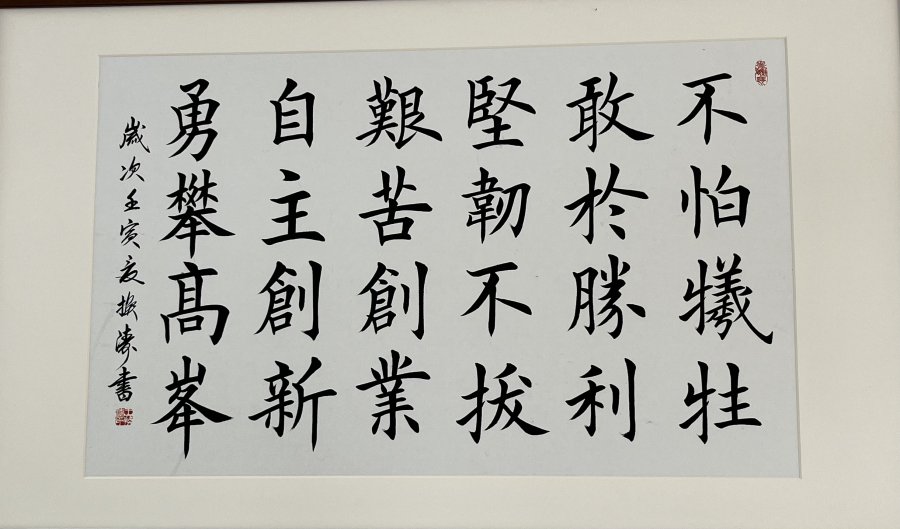 不怕犧牲
敢於勝利
堅韌不拔
艱苦創業
自主創新
勇攀高峯
歲次壬寅夏振濤書